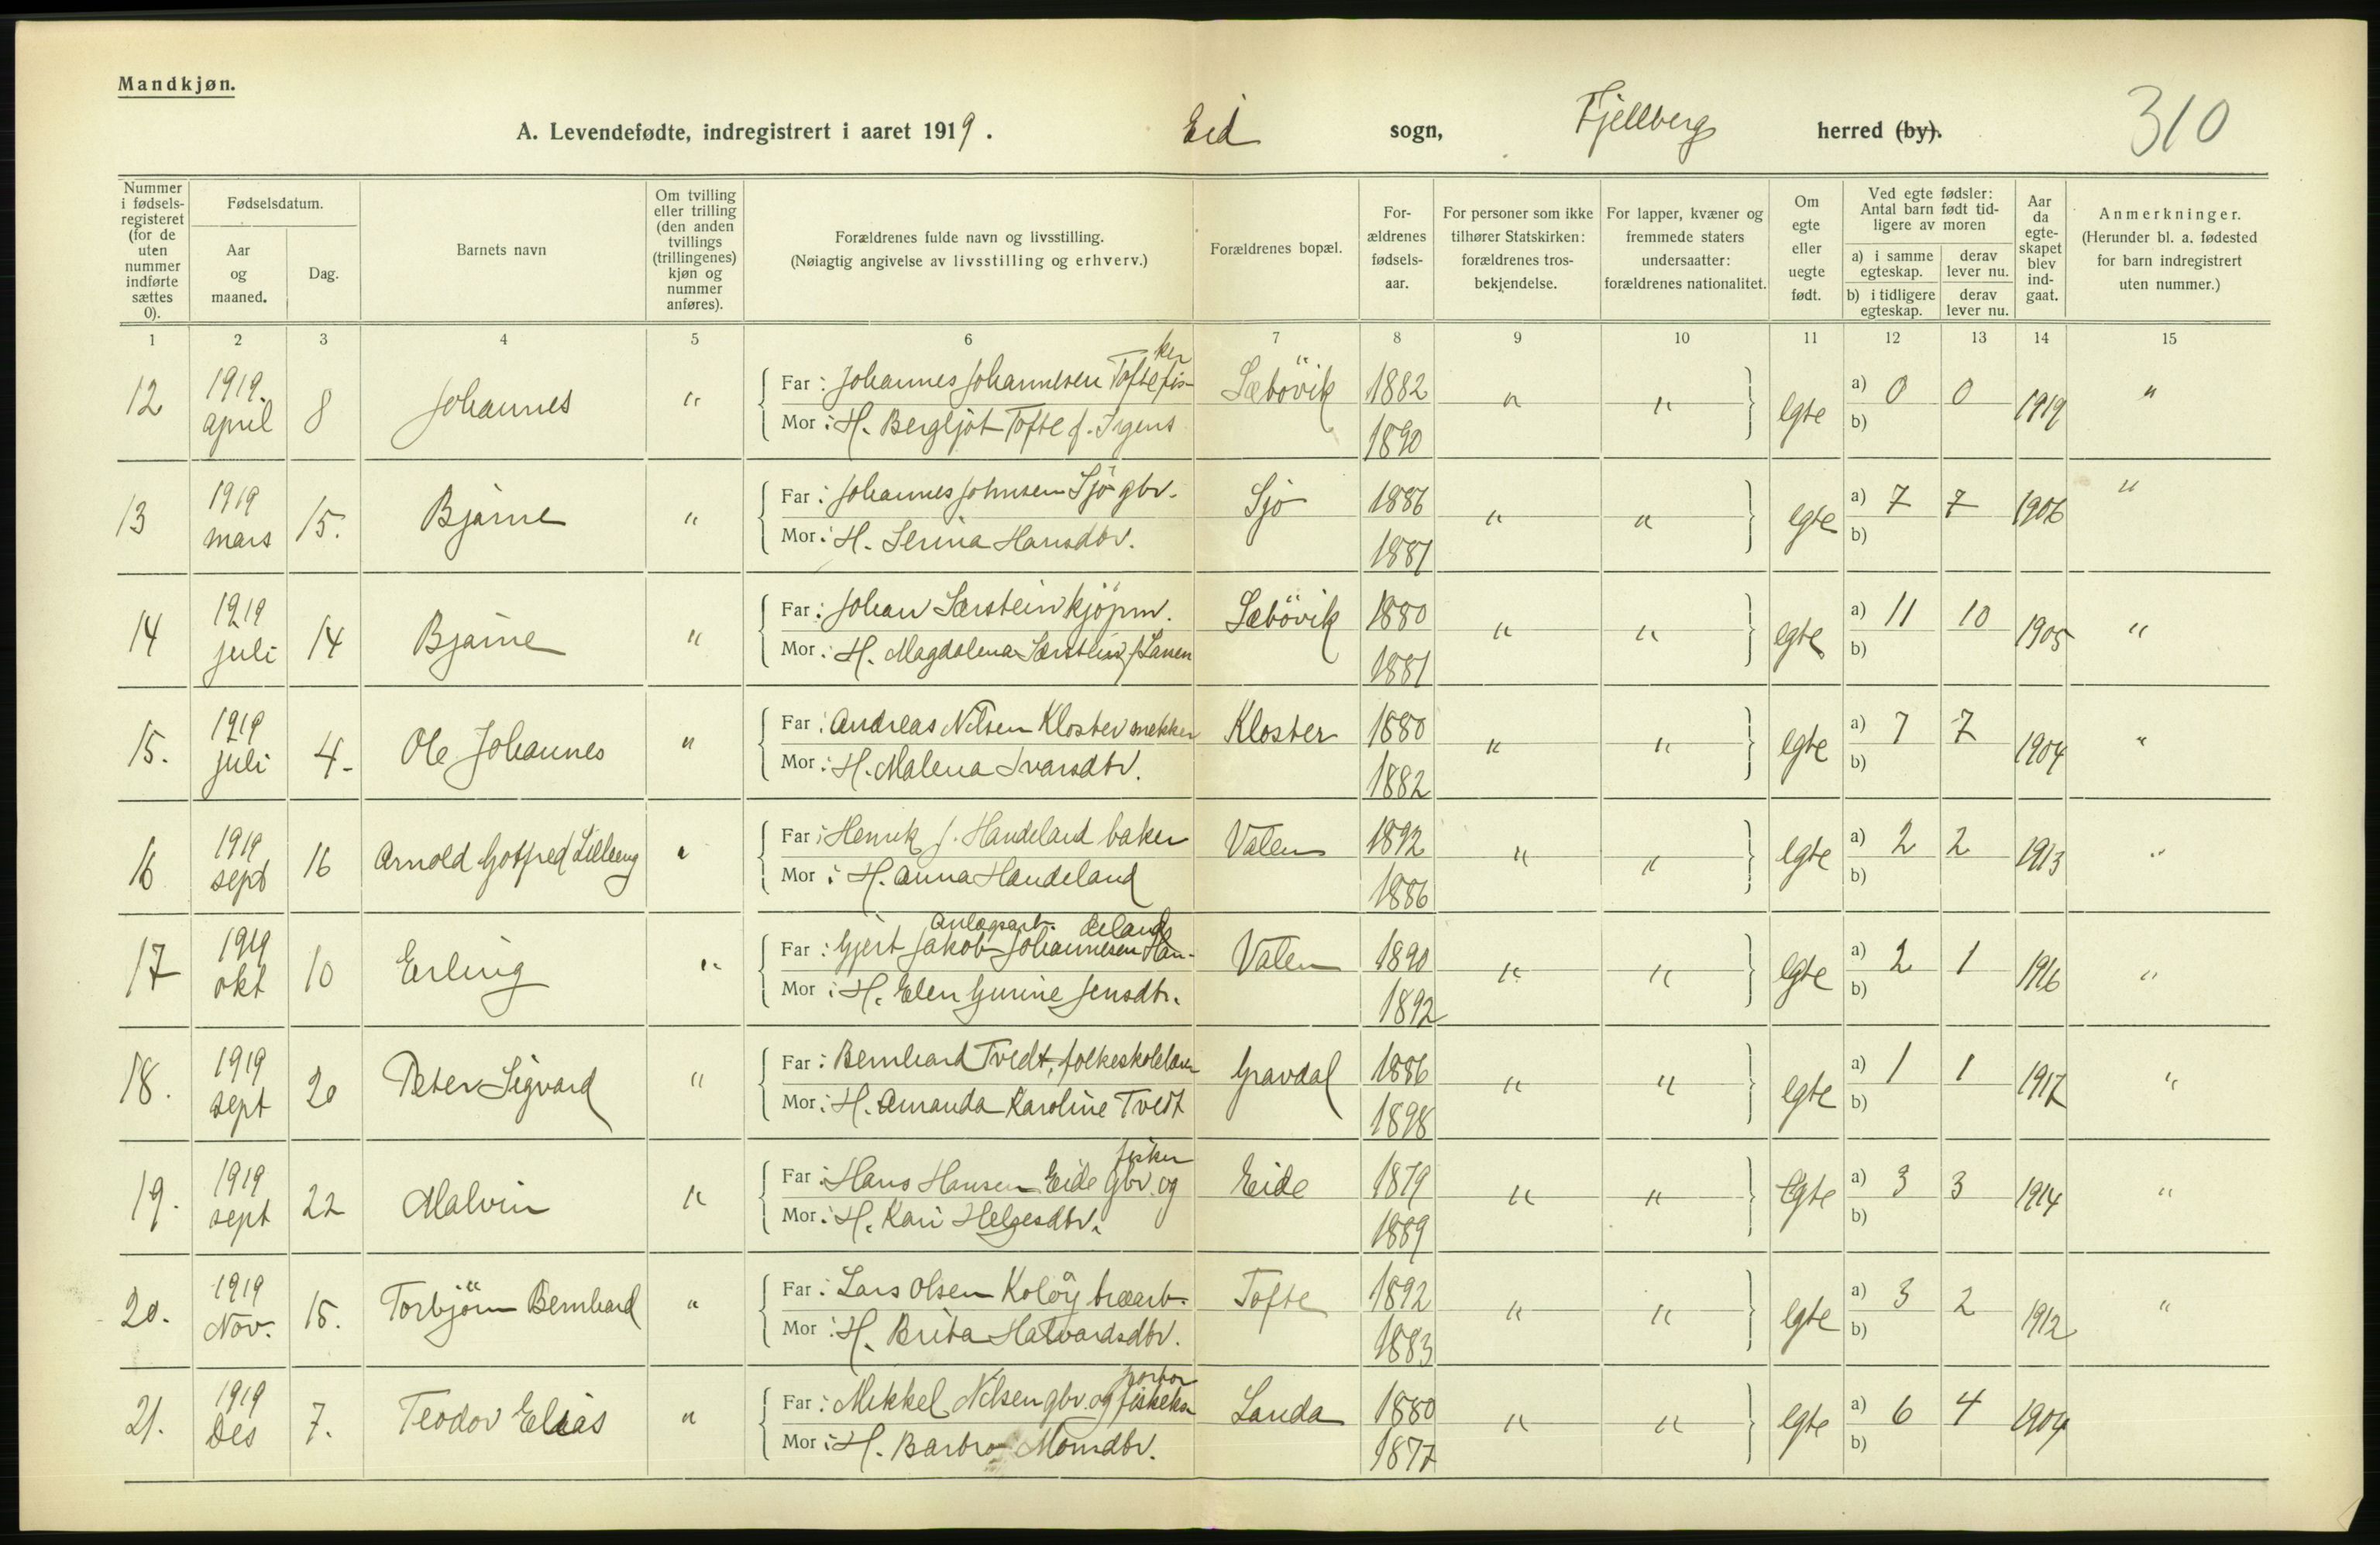 Mandkjøn.
A. Levendefødte, indregistrert i aaret 1919. Eid sogn, Fjellberg herred (by). 310
Nummer i fødselsregisteret (for de uten nummer indførte sættes 0).
Fødselsdatum.
Aar og maaned.
Dag.
Barnets navn
Om tvilling eller trilling (den anden tvillings (trillingenes) kjøn og nummer anføres).
Forældrenes fulde navn og livsstilling. (Nøiagtig angivelse av livsstilling og erhverv.)
Forældrenes bopæl.
Forældrenes fødselsaar.
For personer som ikke tilhører Statskirken: forældrenes trosbekjendelse.
For lapper, kvæner og fremmede staters undersaatter: forældrenes nationalitet.
Om egte eller uegte født.
Ved egte fødsler: Antal barn født tidligere av moren
a) i samme egteskap. derav lever nu.
b) i tidligere egteskap. derav lever nu.
Aar da egteskapet blev indgaat.
Anmerkninger. (Herunder bl. a. fødested for barn indregistrert uten nummer.)
1 2 3 4 5 6 7 8 9 10 11 12 13 14 15
12 1919. april 8 Johannes " Far: Johannes Johannesen Tofte fisker Sæbövik 1882 " " egte a) 0 0 1919 "
Mor: H. Bergljot Tofte f. Irgens 1890 b)
13 1919 mars 15. Bjarne " Far: Johannes Johnsen Sjo gbr. Sjo 1886 " " egte a) 7 7 1906 "
Mor: H. Serina Hansdtr. 1881 b)
14 1919 juli 14 Bjarne " Far: Johan Særstein kjöpm. Sæbövik 1880 " " egte a) 11 10 1905 "
Mor: H. Magdalena Særstein f. 1881 b)
15. 1919 juli 4- Ole Johannes " Far: Andreas Nilsen Kloster snekker Kloster 1880 " " egte a) 7 7 1904 "
Mor: H. Malena Ivarsdtr. 1882 b)
16 1919 sept 16 Arnold Gotfred Lilleeng " Far: Henrik J. Handeland baker Valen 1892 " " egte a) 2 2 1913 "
Mor: H. Anna Handeland 1886 b)
17 1919 okt 10 Erling " Far: Gjert Jakob Johannesen Handeland Anlægsarb. Valen 1890 " " egte a) 2 1 1916 "
Mor: H. Elen Gurine Jensdtr. 1892 b)
18. 1919 sept 20 Peter Sigvard " Far: Bernhard Tvedt, folkeskolelærer Gravdal 1886 " " egte a) 1 1 1917 "
Mor: H. Amanda Karoline Tvedt 1898 b)
19. 1919 sept 22 Malvin " Far: Hans Hansen Eide gbr. og fisker Eide 1879 " " Egte a) 3 3 1914 "
Mor: H. Kari Helgesdtr. 1889 b)
20. 1919 Nov. 15. Torbjörn Bernhard " Far: Lars Olsen Kolöy Tofte 1892 " " egte a) 3 2 1912 "
Mor: H. Brita Halvardsdtr. 1883 b)
21. 1919 Des 7. Teodor Elias " Far: Mikkel Nilsen gbr. og Landa 1880 " " egte a) 6 4 1904
Mor: H. Barbro Monsdtr. 1877 b)